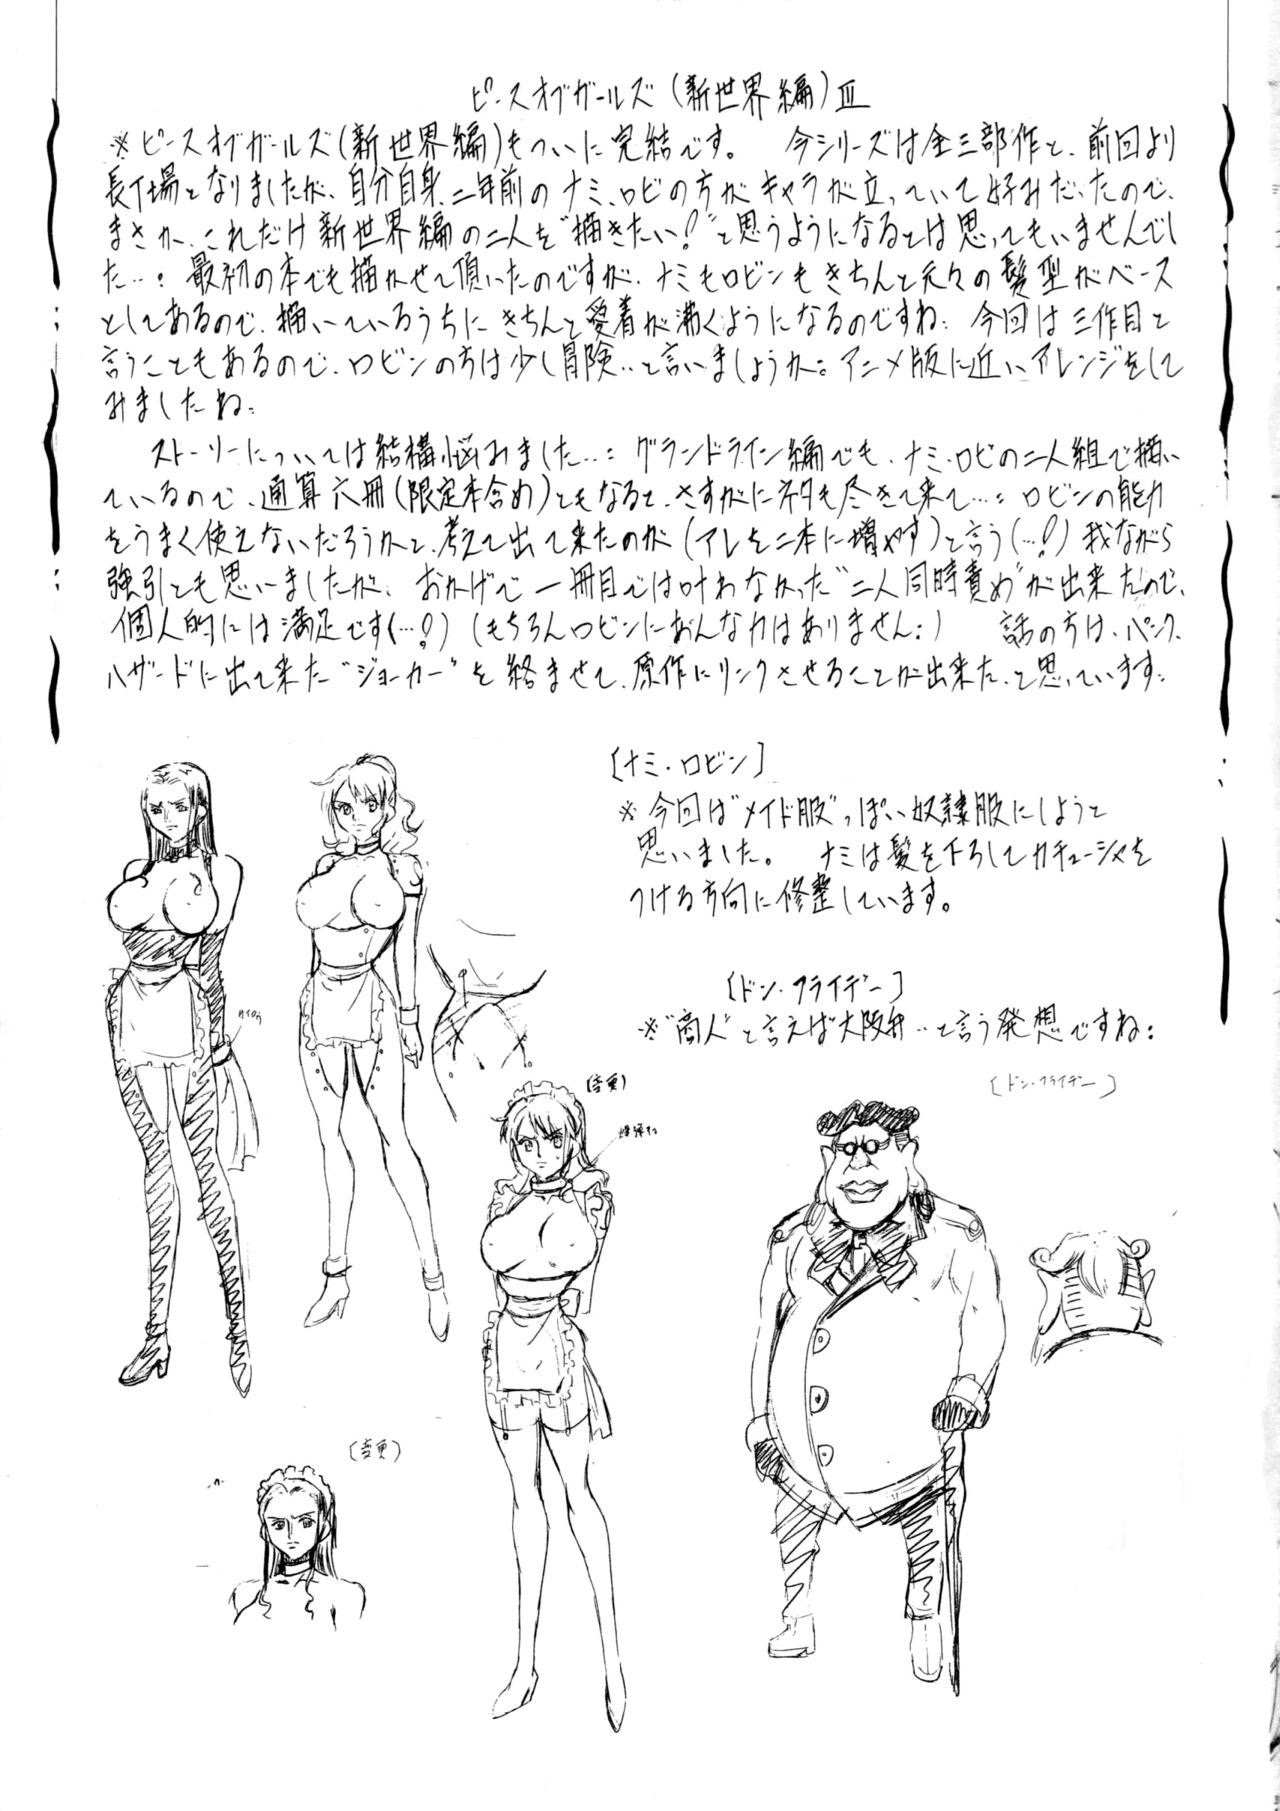 ピースオブガールズ(新世界編)Ⅲ
※ピースオブガールズ(新世界編)もついに完結です。 今シリーズは全三部作と、前回より
長丁場となりましたが、自分自身、二年前のナミ、ロビの方がキャラが立っていて好みだったので、
まさか、これだけ新世界編の二人を"描きたい!"と思うようになるとは思ってもいませんでし
た…: 最初の本でも描かせて頂いたのですが、ナミもロビンもきちんと元々の髪型がベース
としてあるので、描いているうちにきちんと愛着が沸くようになるのですね: 今回は三作目と
言うこともあるので、ロビンの方は少し冒険‥と言いましょうか。アニメ版に近いアレンジをして
みましたね:
ストーリーについては結構悩みました…: グランドライン編でも、ナミ、ロビの二人組で描い
ているので、通算六冊(限定本含め)ともなると、さすがにネタも尽きて来て…: ロビンの能力
をうまく使えないだろうかと、考えて出て来たのが(アレを二本に増やす)と言う(…!?)我ながら
強引とも思いましたが、おかげで一冊目では叶わなかった"二人同時責め"が出来たので、
個人的には満足です(…!?)(もちろんロビンにあんな力はありません:) 話の方は、パンク、
ハザードに出て来た"ジョーカー"を絡ませて、原作にリンクさせることが出来た、と思っています:
[ナミ・ロビン]
※今回は"メイド服"っぽい奴隷服にしようと
思いました。 ナミは髪を下ろしてカチューシャを
つける方向に修整しています。
[ドン・フライデー]
※"商人"と言えば大阪弁‥と言う発想ですね:
[ドン・フライデー]
(変更)
(変更)